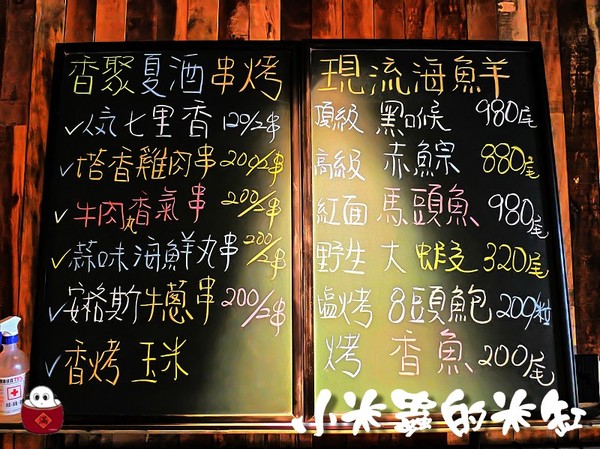 香聚夏酒串烤
✓人氣七里香 120/2串
✓塔香雞肉串 200/2串
✓牛肉丸香氣串 200/2串
✓蒜味海鮮丸串 200/2串
✓安格斯牛蔥串 200/2串
✓香烤玉米
現流海鮮
頂級 黑喉 980尾
高級 赤鯮 880尾
紅面 馬頭魚 980尾
野生大蝦 320尾
塩烤 8頭鮑 200/粒
烤香魚 200尾
小米蟲的米缸